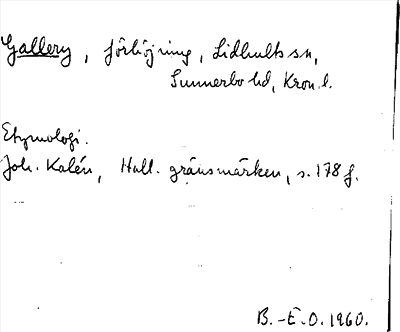 Gallery, förhöjning, Lidhults sn,
Sunnerbo hd, Kron.l.
Etymologi.
Joh. Kalén, Hall. gränsmärken, s. 178 f.
B.-E.O. 1960.